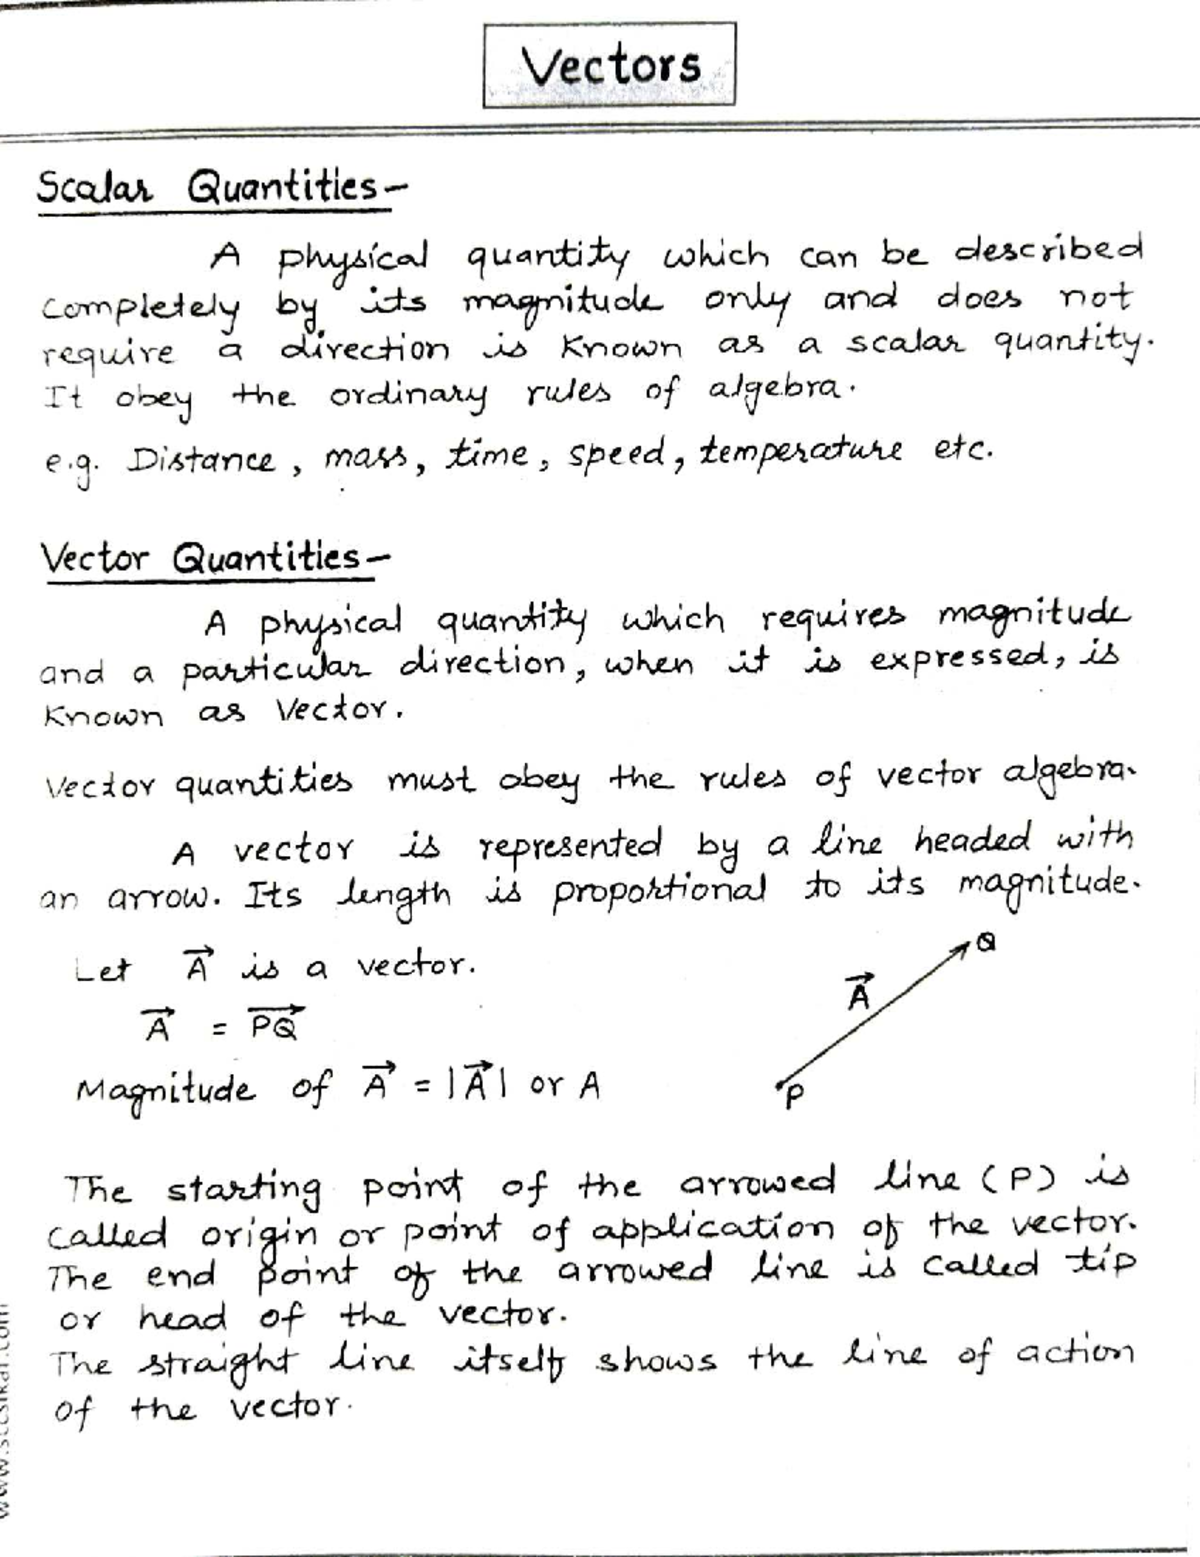 Vectors
Scalar Quantities-
A physical quantity which can be described
completely by its magnitude only and does not
require a direction is known as a scalar quantity.
It obey the ordinary rules of algebra.
e.g. Distance, mass, time, speed, temperature etc.
Vector Quantities-
A physical quantity which requires magnitude
and a particular direction, when it is expressed, is
known as Vector.
Vector quantities must obey the rules of vector algebra.
A vector is represented by a line headed with
an arrow. Its length is proportional to its magnitude.
Let A⃗ is a vector.
A⃗ = P⃗Q⃗
Magnitude of A⃗ = |A⃗| or A
Q
A⃗
P
The starting point of the arrowed line (P) is
called origin or point of application of the vector.
The end point of the arrowed line is called tip
or head of the vector.
The straight line itself shows the line of action
of the vector.